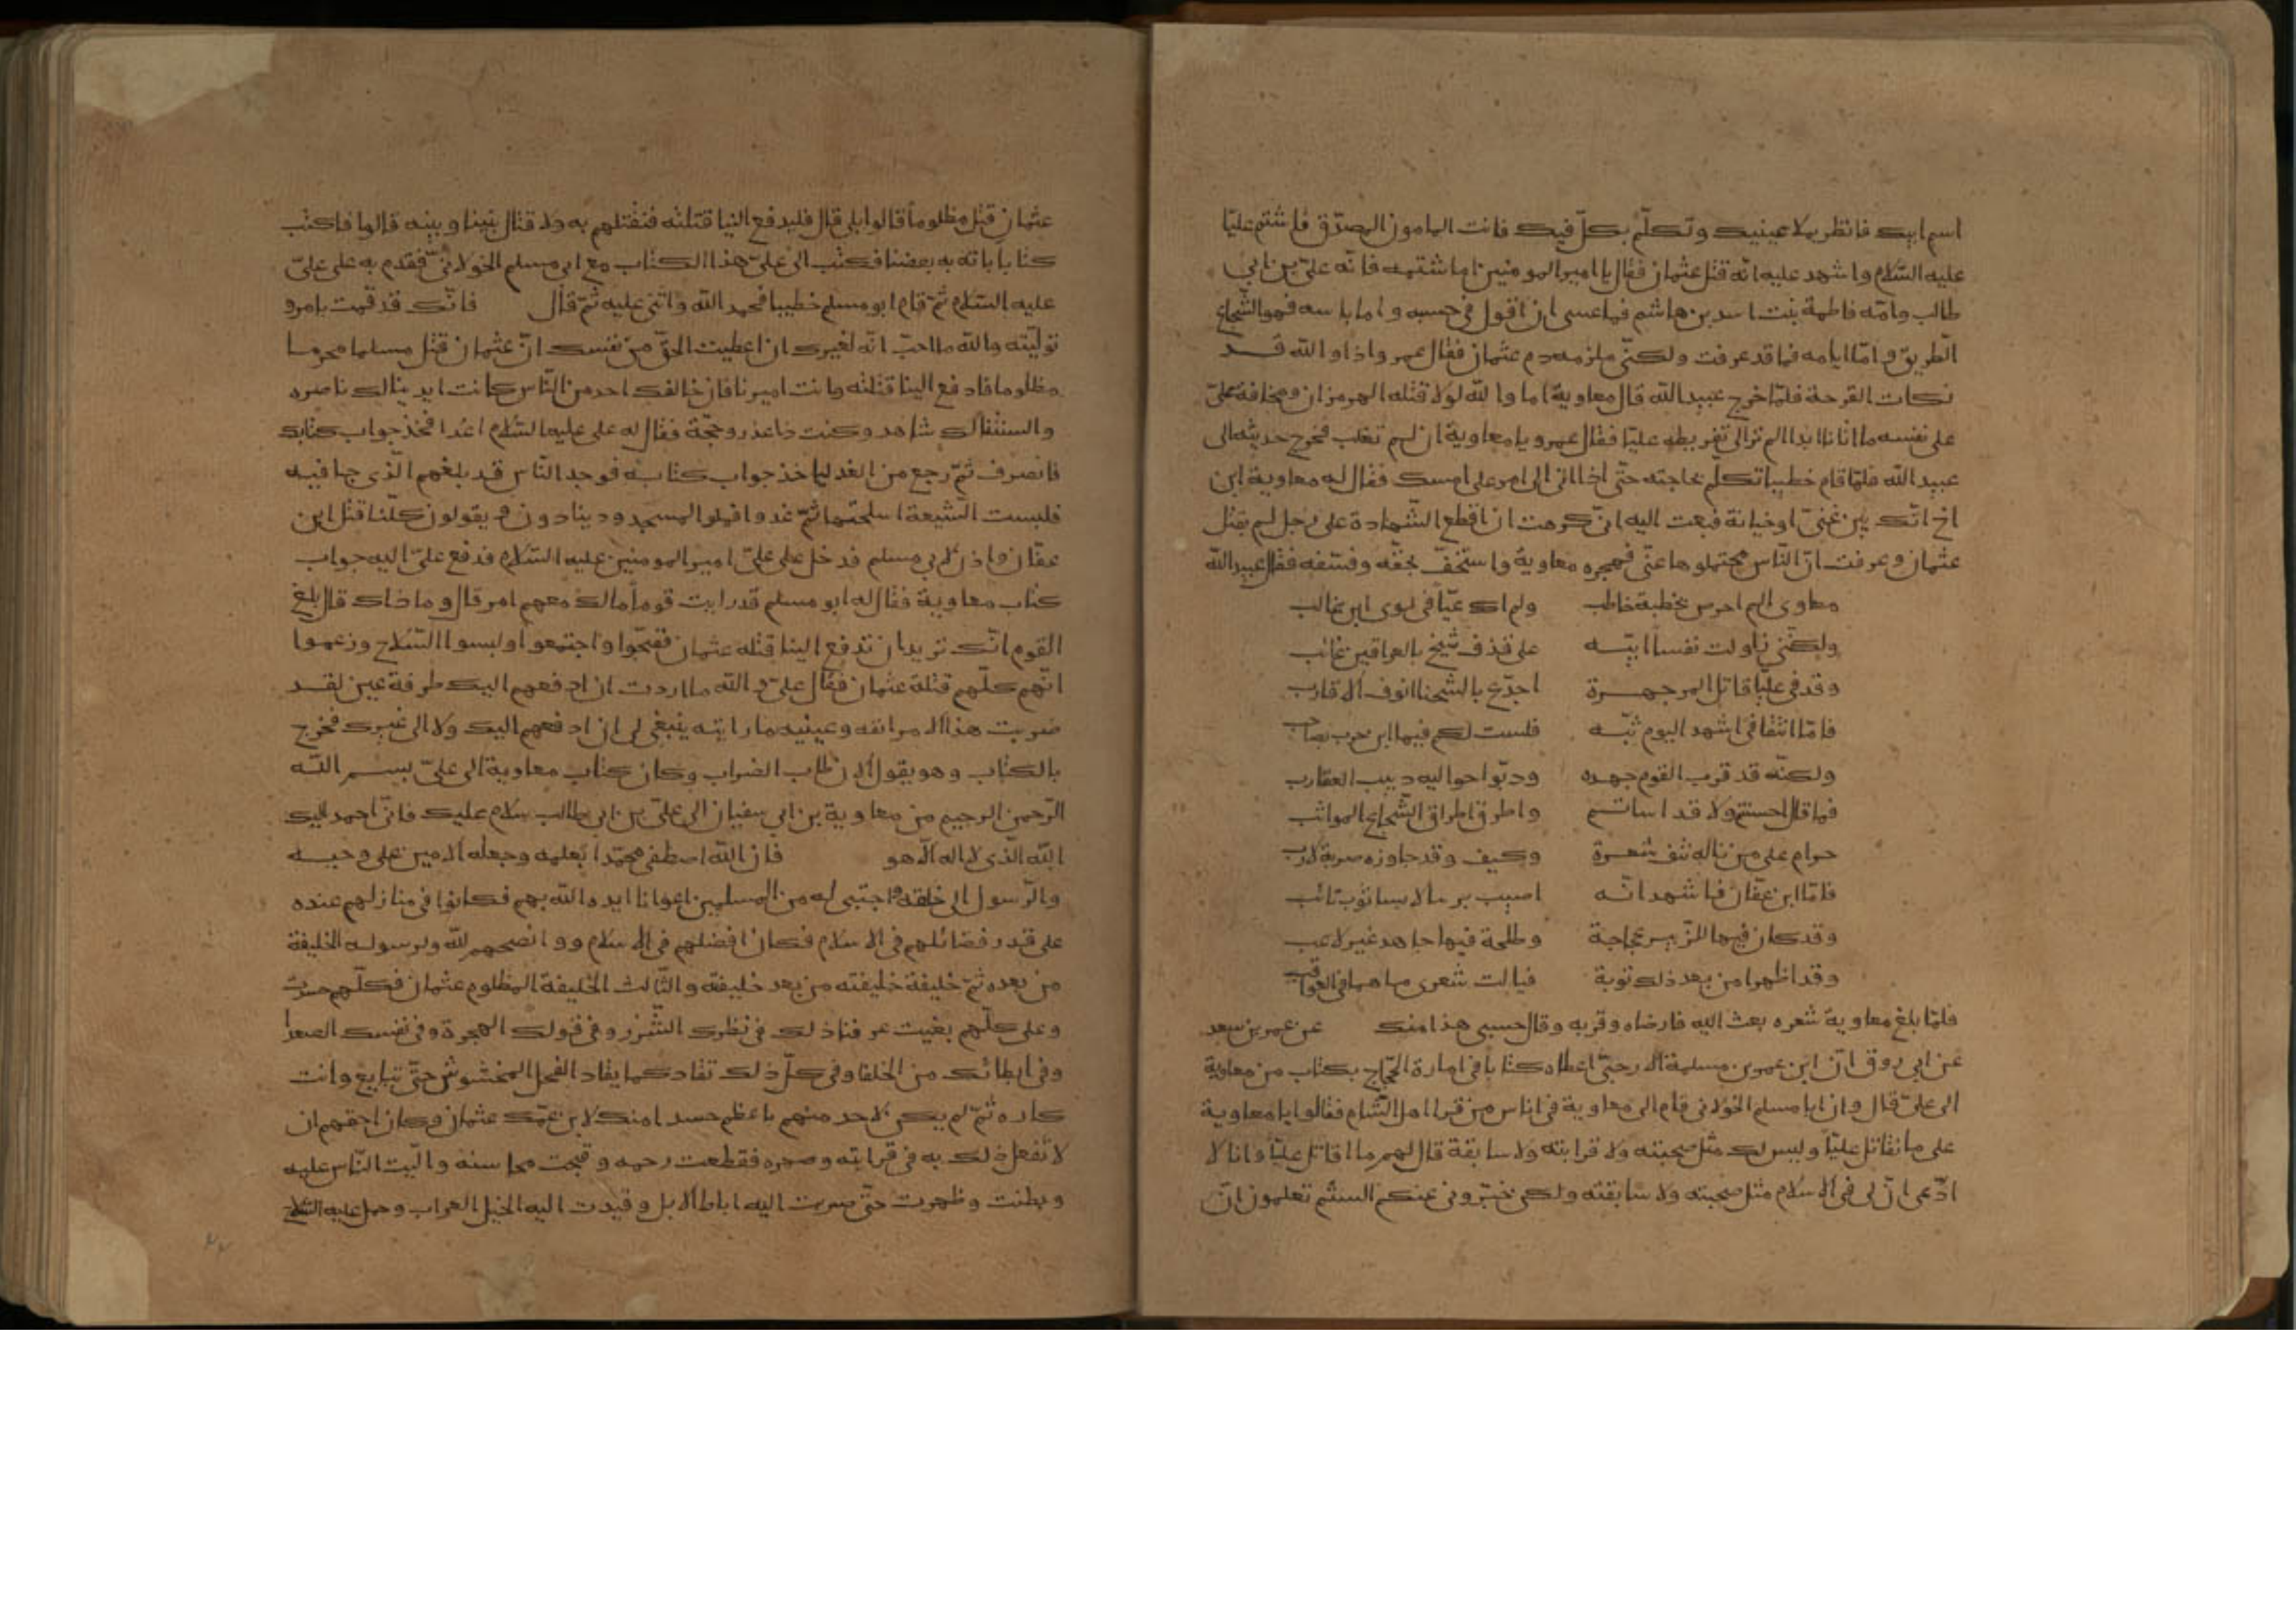 اسم ابيك فانظر بملا عينيك وتكلّم بكلّ فيك فانت المامون المصدّق فاشتم عليّا
عليه السّلام واشهد عليه انّه قتل عثمان فقال يا امير المومنين اما شتمه فانّه عليّ بن ابي
طالب وامّه فاطمة بنت اسد بن هاشم فما عسى ان اقول في حسبه واما باسه فهو الشّجاع
الطريق وامّا ايامه فما قد عرفت ولكنّي ملزمه دم عثمان فقال عمرو اذا والله قد
نكات القرحة فلمّا خرج عبيد الله قال معاوية اما والله لولا قتله الهرمزان ومخافة عليّ
على نفسه ما اتانا ابدا الم تر الى تقريظه عليّا فقال عمرو يا معاوية ان لم تغلب فخرج حديثه الى
عبيد الله فلمّا قام خطيبا تكلّم بحاجته حتّى اذا اتى الى امر علي امسك فقال له معاوية ابن
اخ انّك بين عيّ او خيانة فبعث اليه انّي كرهت ان اقطع الشّهادة على رجل لم يقتل
عثمان وعرفت انّ النّاس محتملوها عنّي فهجره معاوية واستخفّ بحقّه وفسّقه فقال عبيد الله
معاوى الم احرس بخطبة خاطب ولم اك عيّا في لوى ابن غالب
ولكنّني زاولت نفسا ابيّه على قذف شيخ بالعراقين غائب
وقذفي عليّا قاتل المر جهرة اجدّع بالشّحنا انوف الاقارب
فامّا انتفا في اشهد اليوم ثبّه فلست لكم فيها ابن حرب بصاحب
ولكنّه قد قرب القوم جهده ودبّوا حواليه دبيب العقارب
فما قال احسنتم ولا قد اساتم واطرق اطراق الشّجاع المواثب
حرام على من ناله نتف شعرة وكيف وقد جاوزه ضربة لازب
فامّا ابن عفّان فاشهد انّه اصيب بريا لابسا ثوب تائب
وقد كان فيها للزّبير عجاجة وطلحة فيها جاهد غير لاعب
وقد اظهرا من بعد ذلك توبة فياليت شعرى ما هما في العواقب
فلمّا بلغ معاوية شعره بعث اليه فارضاه وقربه وقال حسبى هذا منك عن عمر بن سعد
عن ابي روق انّ ابن عمر بن مسلمة الارحبيّ اعطاه كتابا في امارة الحجّاج بكتاب من معاوية
الى عليّ قال وان ابا مسلم الخولاني قام الى معاوية في اناس من قرا اهل الشّام فقالوا يا معاوية
على ما نقاتل عليّا وليس لك مثل صحبته ولا قرابته ولا سابقة قال لهم ما اقاتل عليّا وانا لا
ادّعى انّ لى في الاسلام مثل صحبته ولا سابقته ولكن خبّروني عنكم الستم تعلمون انّ
عثمان قتل مظلوما قالوا بلى قال فليدفع الينا قتلته فنقتلهم به ولا قتال بيننا وبينه قالوا فاكتب
كتابا ياته به بعضنا فكتب الى عليّ هذا الكتاب مع ابي مسلم الخولانيّ فقدم به على عليّ
عليه السّلام ثمّ قام ابو مسلم خطيبا فحمد الله واثنى عليه ثمّ قال فانّك قد قمت بامر و
تولّيته والله ما احبّ انّه لغيرك ان اعطيت الحقّ من نفسك انّ عثمان قتل مسلما محرما
مظلوما فادفع الينا قتلته وانت اميرنا فان خالفك احد من النّاس كانت ايدينا لك ناصره
والسنتنا لك شاهد وكنت ذا عذر وحجّة فقال له على عليه السّلام اغدا فخذ جواب كتابك
فانصرف ثمّ رجع من الغد لياخذ جواب كتابه فوجد النّاس قد بلغهم الّذي جا فيه
فلبست الشّيعة اسلحتها ثمّ غدوا فملوا المسجد وينادون ويقولون كلّنا قتل ابن
عفّان واذن لابي مسلم فدخل على عليّ امير المومنين عليه السّلام فدفع عليّ اليه جواب
كتاب معاوية فقال له ابو مسلم قد رايت قوما مالك معهم امر قال وما ذاك قال بلغ
القوم انّك تريد ان تدفع الينا قتله عثمان فضجّوا واجتمعوا ولبسوا السّلاح وزعموا
انّهم كلّهم قتلة عثمان فقال عليّ والله ما اردت ان ادفعهم اليك طرفة عين لقد
ضربت هذا الامر انفه وعينيه ما رايته ينبغي لى ان ادفعهم اليك ولا الى غيرك فخرج
بالكتاب وهو يقول الان طاب الضراب وكان كتاب معاوية الى عليّ بسم الله
الرّحمن الرحيم من معاوية بن ابي سفيان الى عليّ بن ابي طالب سلام عليك فانّى احمد اليك
الله الّذى لا اله الّا هو فان الله اصطفى محمّدا بعلمه وجعله الامين على وحيه
والرّسول الى خلقه واجتبى له من المسلمين اعوانا ايده الله بهم فكانوا في منازلهم عنده
على قدر فضائلهم في الاسلام فكان افضلهم في الاسلام و وانصحهم لله ولرسوله الخليفة
من بعده ثمّ خليفة خليفته من بعد خليفته والثّالث الخليفة المظلوم عثمان فكلّهم حسدت
وعلى كلّهم بغيت عرفنا ذلك في نظرك الشّزر وفي قولك الهجرة وفي نفسك الصعدا
وفي ابطائك من الخلفا وفي كلّ ذلك تقاد كما يقاد الفحل المخشوش حتّى تبايع وانت
كاره ثمّ لم يكن لاحد منهم باعظم حسدا منك لابن عمّك عثمان وكان احقهم ان
لا تفعل ذلك به في قرابته وصهره فقطعت رحمه وقبحت محاسنه والّبت النّاس عليه
وبطنت وظهرت حتّى ضربت اليه اباط الابل وقيدت اليه الخيل العراب وحمل عليه السّلاح